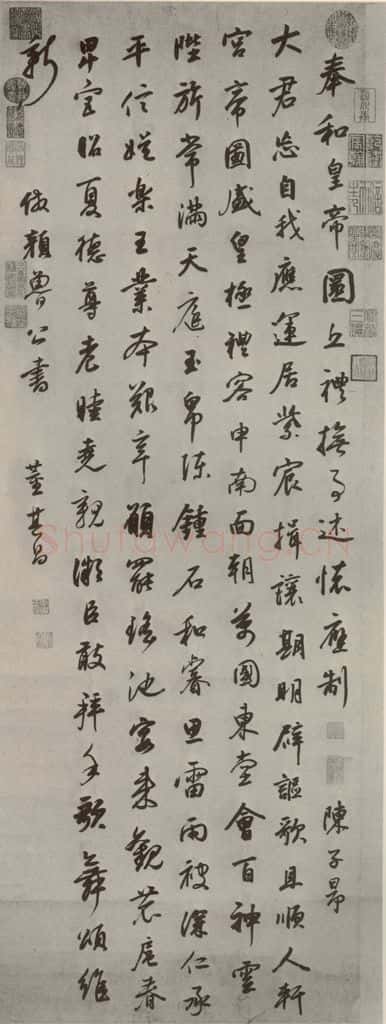 奉和皇帝圜丘禮撫事述懷應制 陳子昂
大君忘自我應運居紫宸揖讓期明辟謳歌且順人軒
宮帝圖盛皇極禮容申南面朝萬國東堂會百神雲
陛旂常滿天庭玉帛陳鍾石和睿思雷雨被深仁承
平信娛樂王業本艱辛願罷瑤池宴來觀農扈春
卑宮昭夏德尊老睦堯親微臣敢拜手歌舞頌維
新
倣顏魯公書 董其昌
Shufawang.CN